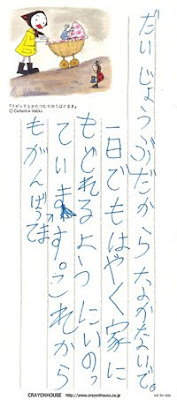 だいじょうぶだからなかないで。
一日でもはやく家に
もどれるようにいのっ
ています。これから
もがんばって
『リゼッテとかたつむりのうばぐるま』
© Catharina Valckx
CRAYONHOUSE http://www.crayonhouse.co.jp not for sale